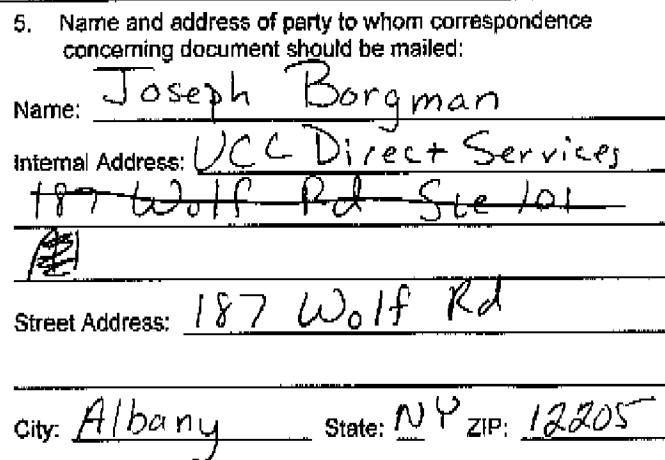 5. Name and address of party to whom correspondence
concerning document should be mailed:
Name: Joseph Borgman
Internal Address: UCC Direct Services
187 Wolf Rd Ste 101
Street Address: 187 Wolf Rd
City: Albany State: NY ZIP: 12205